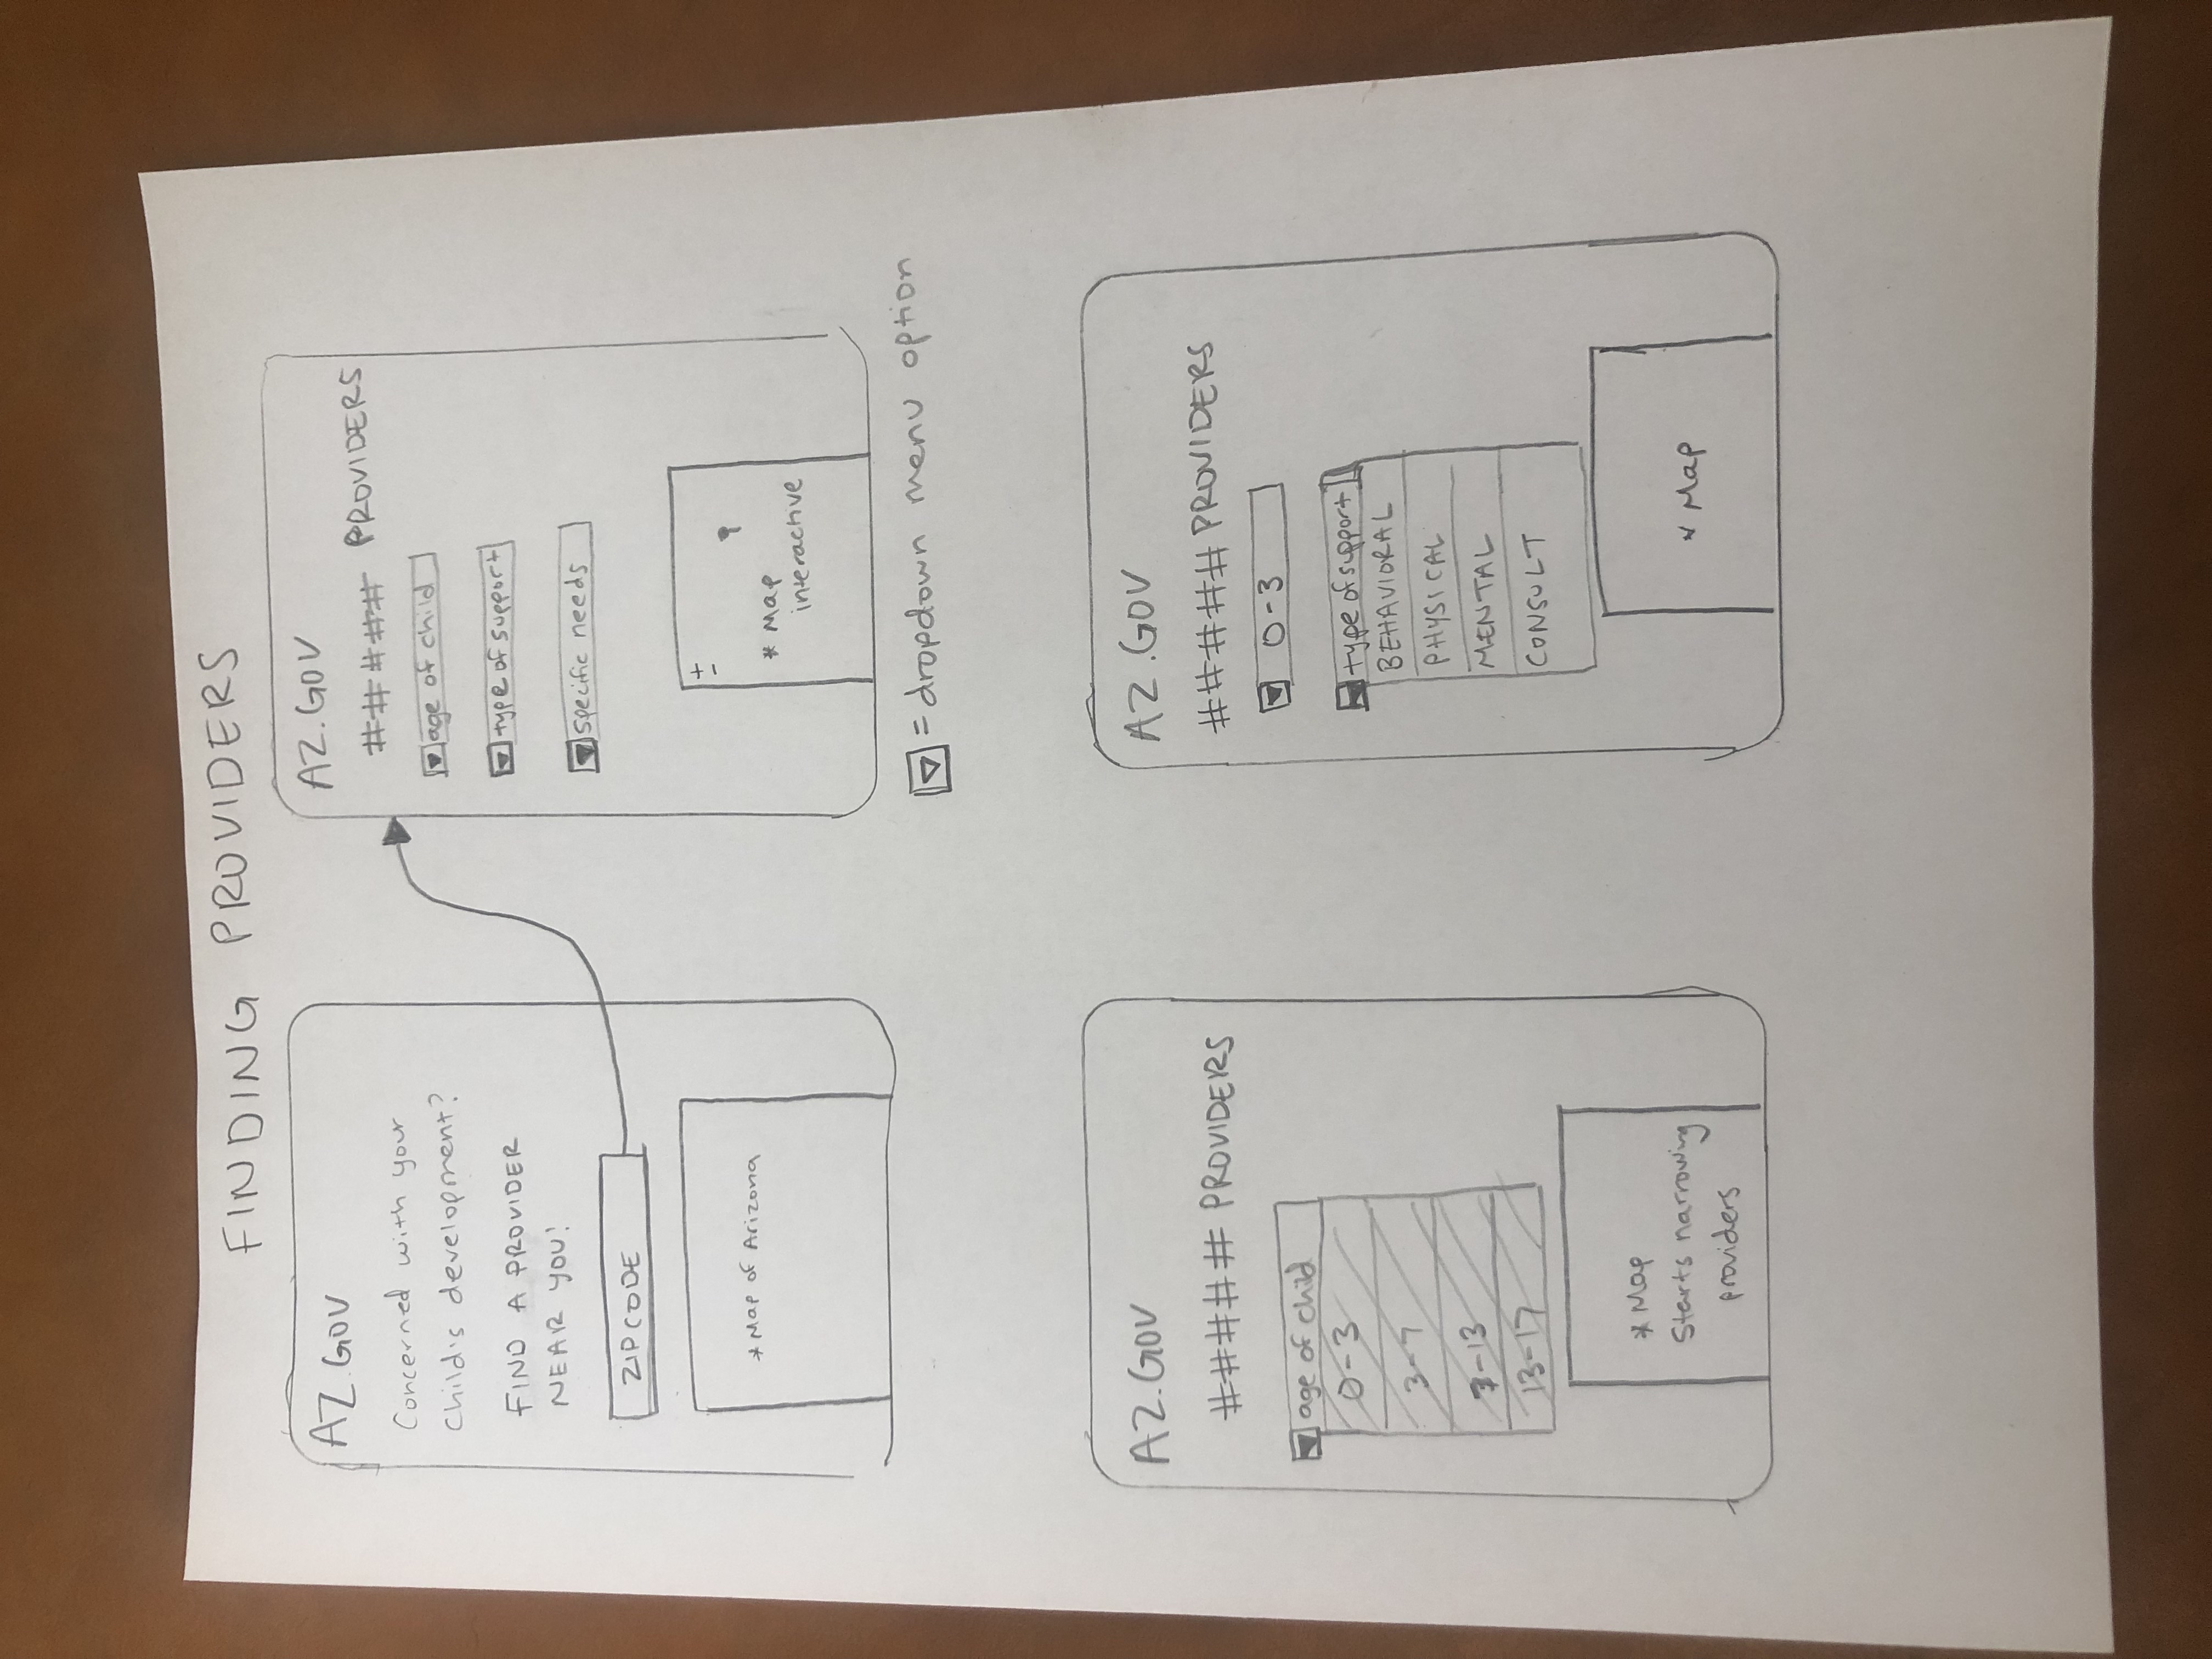 FINDING PROVIDERS
AZ.GOV
Concerned with your
Child's development?
FIND A PROVIDER
NEAR YOU!
ZIPCODE
* Map of Arizona
AZ.GOV
##### PROVIDERS
age of child
type of support
specific needs
+
-
* Map
interactive
= dropdown menu option
AZ.GOV
##### PROVIDERS
age of child
0-3
3-7
7-13
13-17
* Map
Starts narrowing
providers
AZ.GOV
##### PROVIDERS
0-3
type of support
BEHAVIORAL
PHYSICAL
MENTAL
CONSULT
* Map